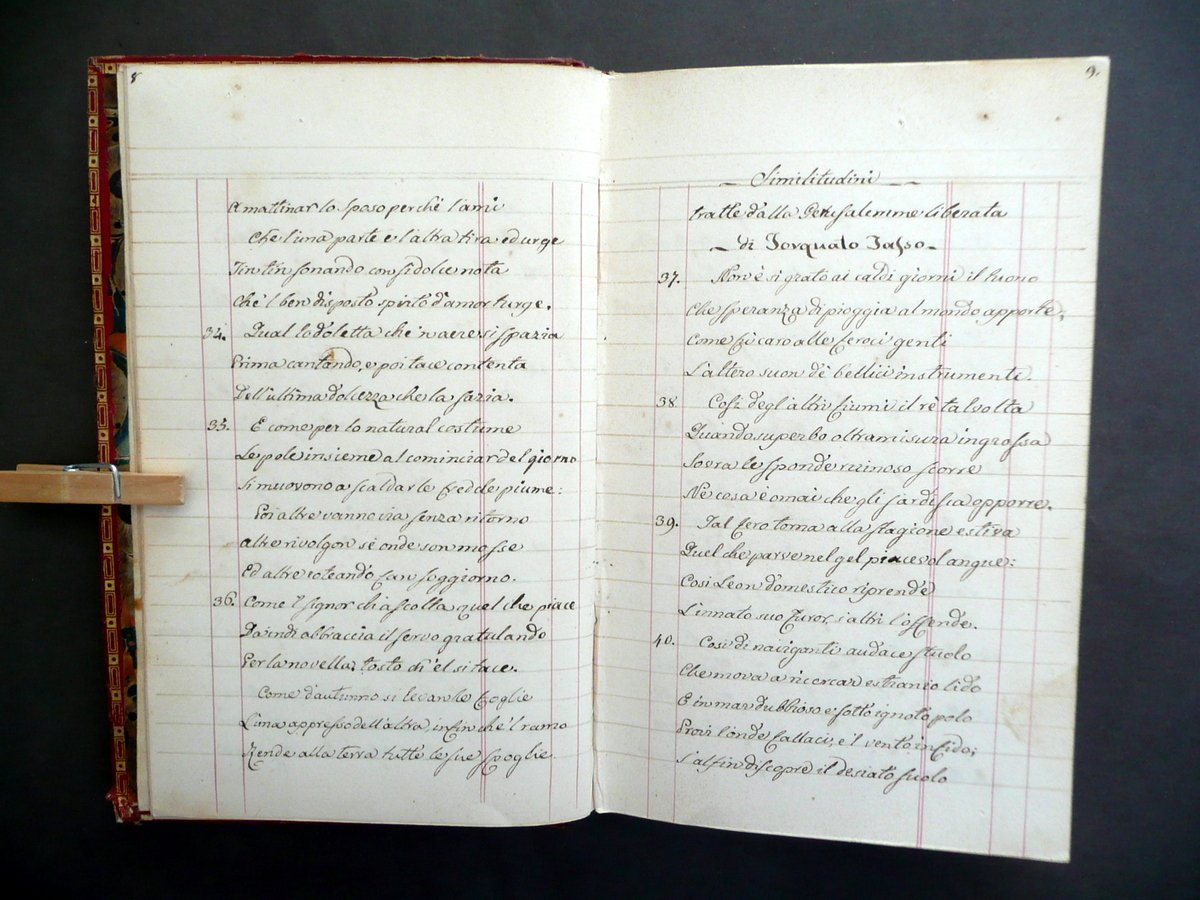 8
A mattinar lo sposo perchè l'ami
Che l'una parte e l'altra tira ed urge
Tin tin sonando con sì dolce nota
Che 'l ben disposto spirto d'amor turge.
34. Qual lodoletta che 'n aere si spazia
Prima cantando, e poi tace contenta
Dell'ultima dolcezza che la sazia.
35. E come per lo natural costume
Le pole insieme al cominciar del giorno
Si muovono a scaldar le fredde piume:
Poi altre vanno via senza ritorno
Altre rivolgon sè onde son mosse
Ed altre roteando fan soggiorno.
36. Come 'l signor ch'ascolta quel che piace
Da indi abbraccia il servo gratulando
Per la novella, tosto ch'el si tace.
Come d'autunno si levan le foglie
L'una appresso dell'altra, infin che 'l ramo
Rende alla terra tutte le sue spoglie
9.
Similitudini
tratte dalla Gerusalemme liberata
di Torquato Tasso
37. Non è sì grato ai caldi giorni il tuono
Che speranza di pioggia al mondo apporte,
Come fù caro alle feroci genti
L'altero suon de' bellici instrumenti.
38 Così degl'altri fiumi il rè talvolta
Quando superbo oltra misura ingrossa
Sovra le sponde ruinoso scorre
Nè cosa è omai che gli s'ardisca opporre.
39. Tal fero torna alla stagione estiva
Quel che parve nel gel piacevol angue:
Così Leon domestico riprende
L'innato suo furor, s'altri l'offende.
40. Così di naviganti audace stuolo
Che mova a ricercar estranio lido
E in mar dubbioso e sotto ignoto polo
Provi l'onde fallaci, e 'l vento infido;
S'alfin discopre il desiato suolo